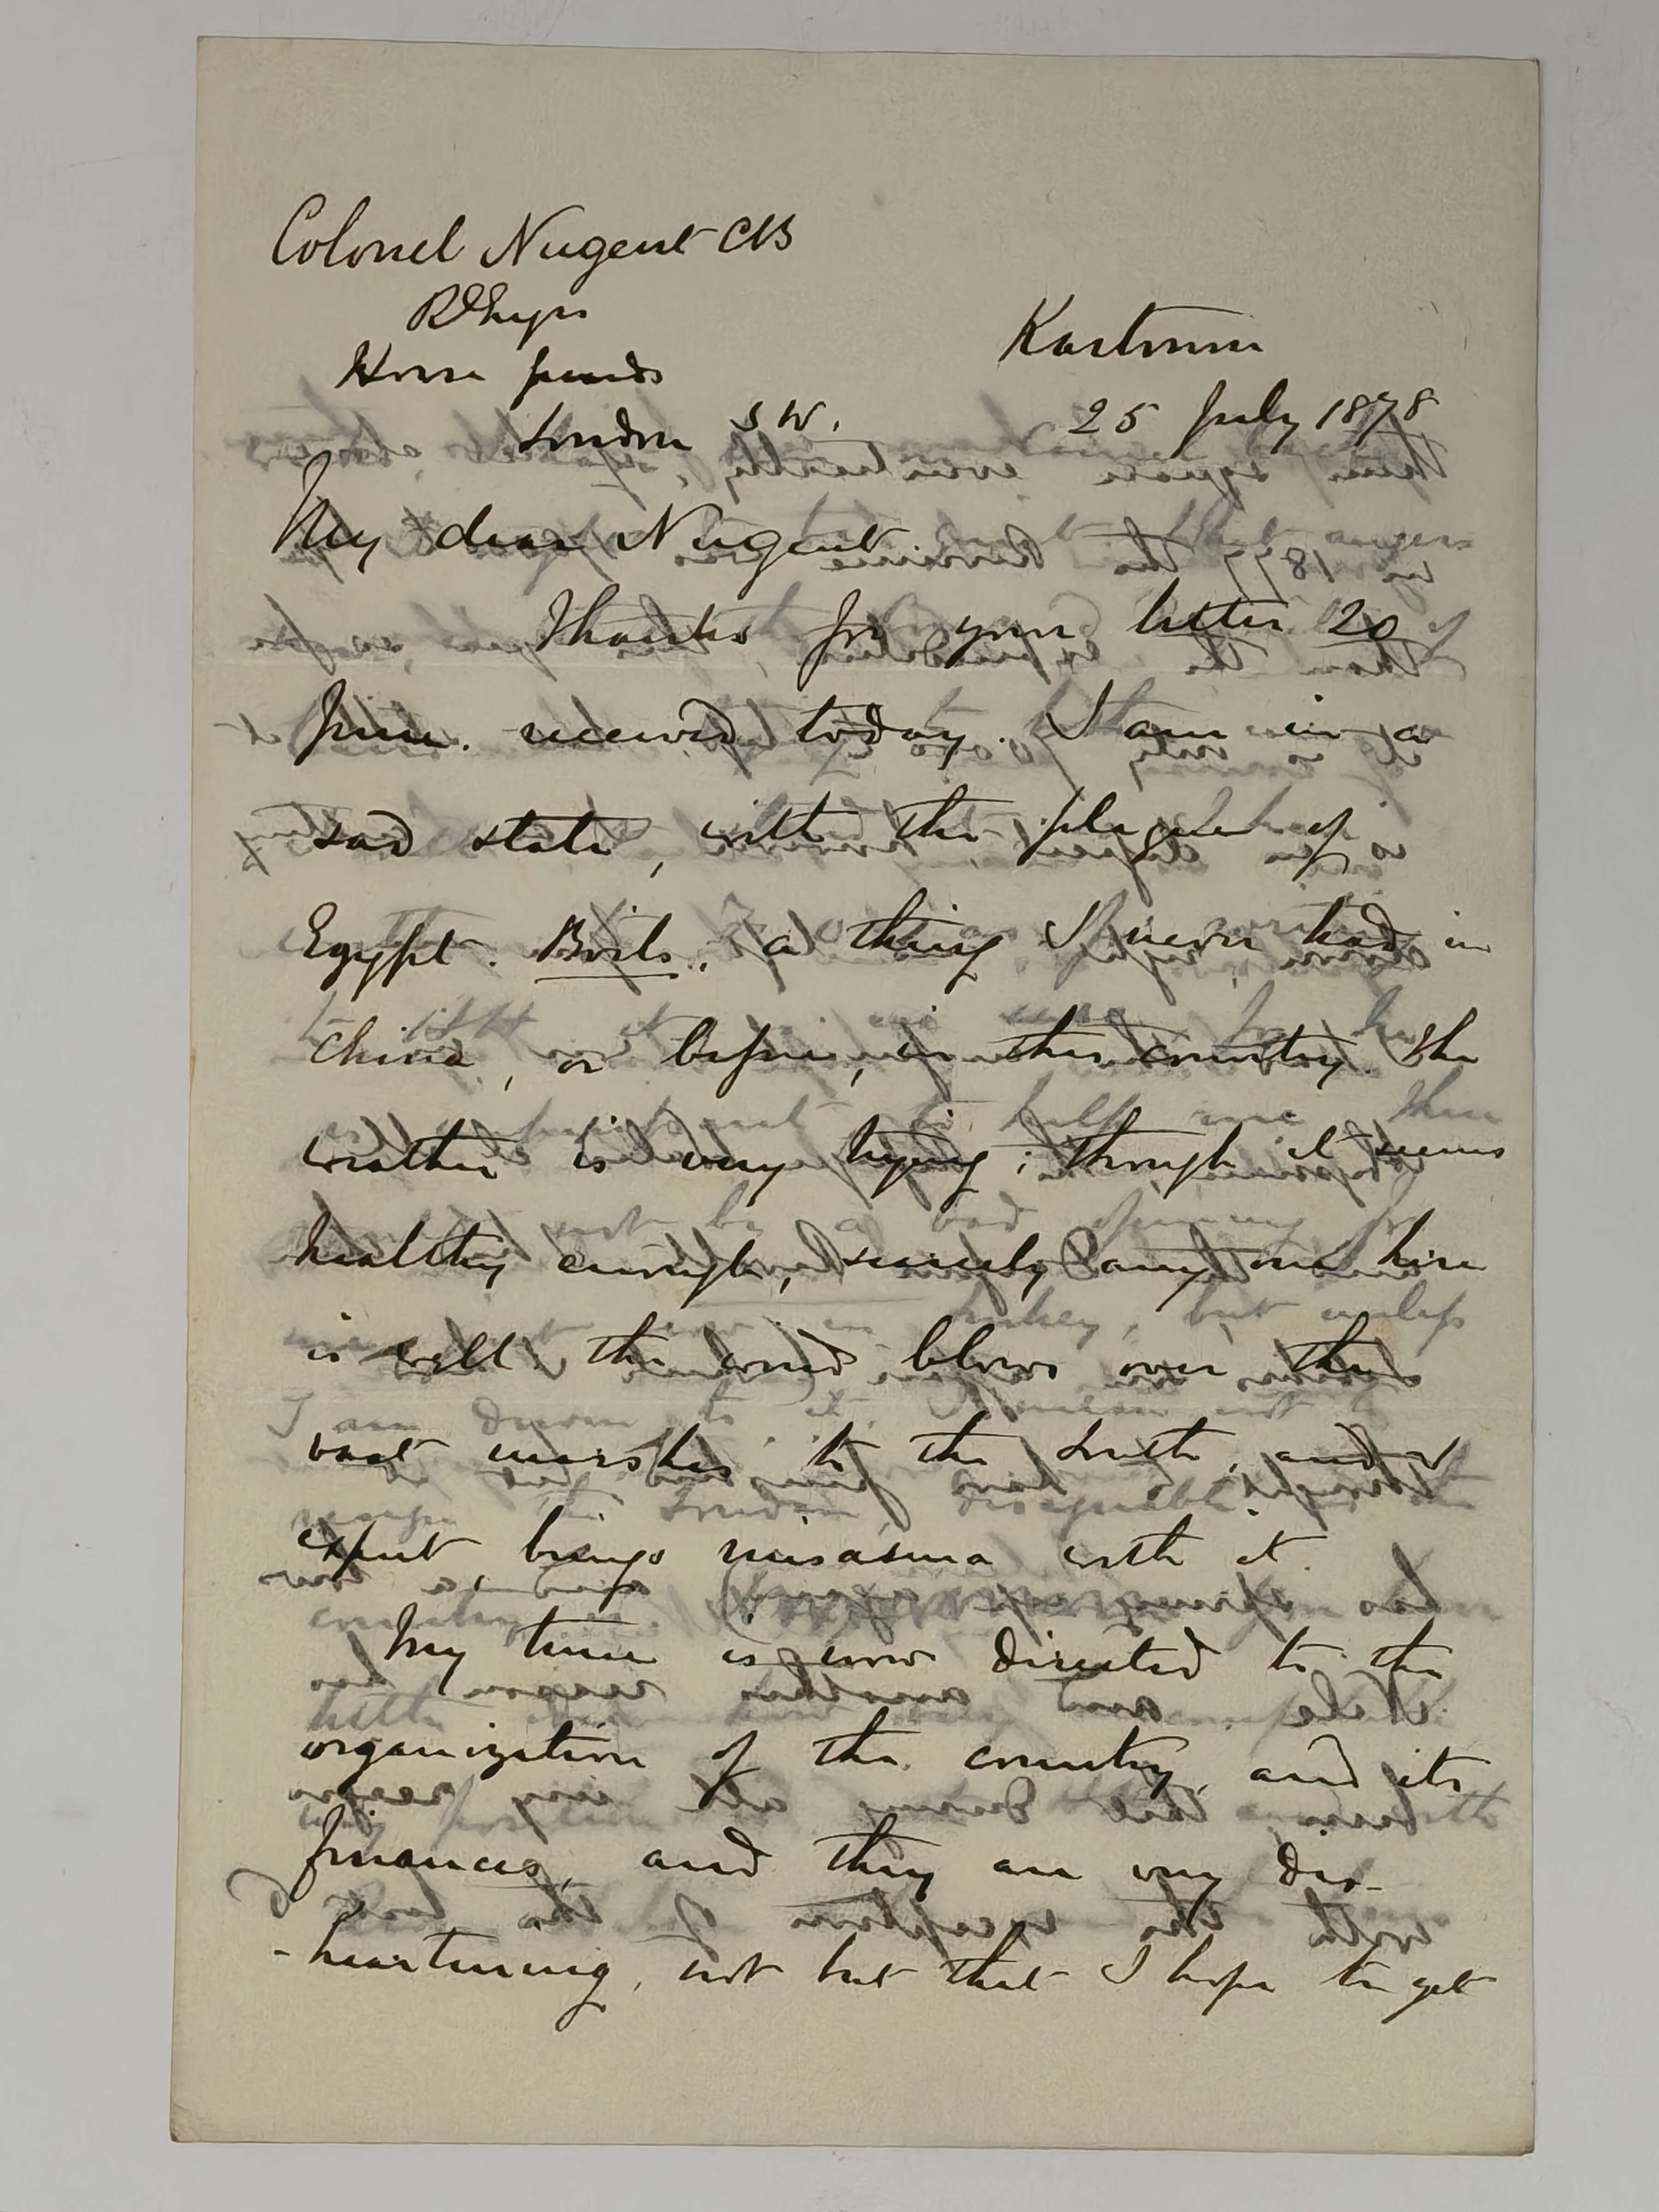 Colonel Nugent CB
R Engrs
Horse Guards
London S W.
Kartoum
25 July 1878
My dear Nugent.
Thanks for your letter 20
June. received today. I am in a
sad state, with the plague of
Egypt. Boils, a thing I never had in
China, or before, in this country. The
weather is very trying; though it seems
healthy enough, scarcely any one here
is well. the wind blows over the
vast marshes to the South, and I
expect, brings miasma with it.
My time is now directed to the
organization of the country, and its
finances, and they are very dis-
-heartening, not but that I hope to get